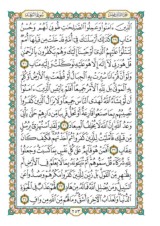 الَّذِينَ ءَامَنُوا وَعَمِلُوا الصَّالِحَاتِ طُوبَى لَهُمْ وَحُسْنُ
مَـَٔابٍ ٢٩ كَذَلِكَ أَرْسَلْنَاكَ فِي أُمَّةٍ قَدْ خَلَتْ مِن قَبْلِهَا أُمَمٌ
لِّتَتْلُوَا عَلَيْهِمُ الَّذِي أَوْحَيْنَا إِلَيْكَ وَهُمْ يَكْفُرُونَ بِالرَّحْمَنِ
قُلْ هُوَ رَبِّي لَا إِلَهَ إِلَّا هُوَ عَلَيْهِ تَوَكَّلْتُ وَإِلَيْهِ مَتَابِ ٣٠
وَلَوْ أَنَّ قُرْءَانًا سُيِّرَتْ بِهِ الْجِبَالُ أَوْ قُطِّعَتْ بِهِ الْأَرْضُ أَوْ كُلِّمَ
بِهِ الْمَوْتَى بَل لِّلَّهِ الْأَمْرُ جَمِيعًا أَفَلَمْ يَا۟يْـَٔسِ الَّذِينَ
ءَامَنُوا أَن لَّوْ يَشَاءُ اللَّهُ لَهَدَى النَّاسَ جَمِيعًا وَلَا يَزَالُ الَّذِينَ
كَفَرُوا تُصِيبُهُم بِمَا صَنَعُوا قَارِعَةٌ أَوْ تَحُلُّ قَرِيبًا مِّن دَارِهِمْ
حَتَّى يَأْتِيَ وَعْدُ اللَّهِ إِنَّ اللَّهَ لَا يُخْلِفُ الْمِيعَادَ ٣١ وَلَقَدِ اسْتُهْزِئَ
بِرُسُلٍ مِّن قَبْلِكَ فَأَمْلَيْتُ لِلَّذِينَ كَفَرُوا ثُمَّ أَخَذْتُهُمْ فَكَيْفَ كَانَ
عِقَابِ ٣٢ أَفَمَنْ هُوَ قَائِمٌ عَلَى كُلِّ نَفْسٍ بِمَا كَسَبَتْ وَجَعَلُوا
لِلَّهِ شُرَكَاءَ قُلْ سَمُّوهُمْ أَمْ تُنَبِّئُونَهُ بِمَا لَا يَعْلَمُ فِي الْأَرْضِ أَم
بِظَاهِرٍ مِّنَ الْقَوْلِ بَلْ زُيِّنَ لِلَّذِينَ كَفَرُوا مَكْرُهُمْ وَصُدُّوا عَنِ
السَّبِيلِ وَمَن يُضْلِلِ اللَّهُ فَمَا لَهُ مِنْ هَادٍ ٣٣ لَّهُمْ عَذَابٌ فِي الْحَيَوةِ
الدُّنْيَا وَلَعَذَابُ الْآخِرَةِ أَشَقُّ وَمَا لَهُم مِّنَ اللَّهِ مِن وَاقٍ ٣٤
٢٥٣